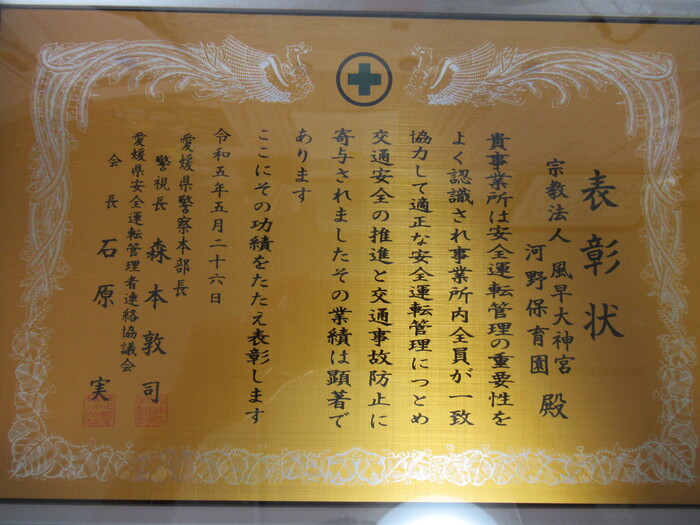 表彰状
宗教法人 風早大神宮
河野保育園 殿
貴事業所は安全運転管理の重要性を
よく認識され事業所内全員が一致
協力して適正な安全運転管理につとめ
交通安全の推進と交通事故防止に
寄与されましたその業績は顕著で
あります
ここにその功績をたたえ表彰します
令和五年五月二十六日
愛媛県警察本部長
警視長 森本敦司
愛媛県安全運転管理者連絡協議会
会長 石原 実